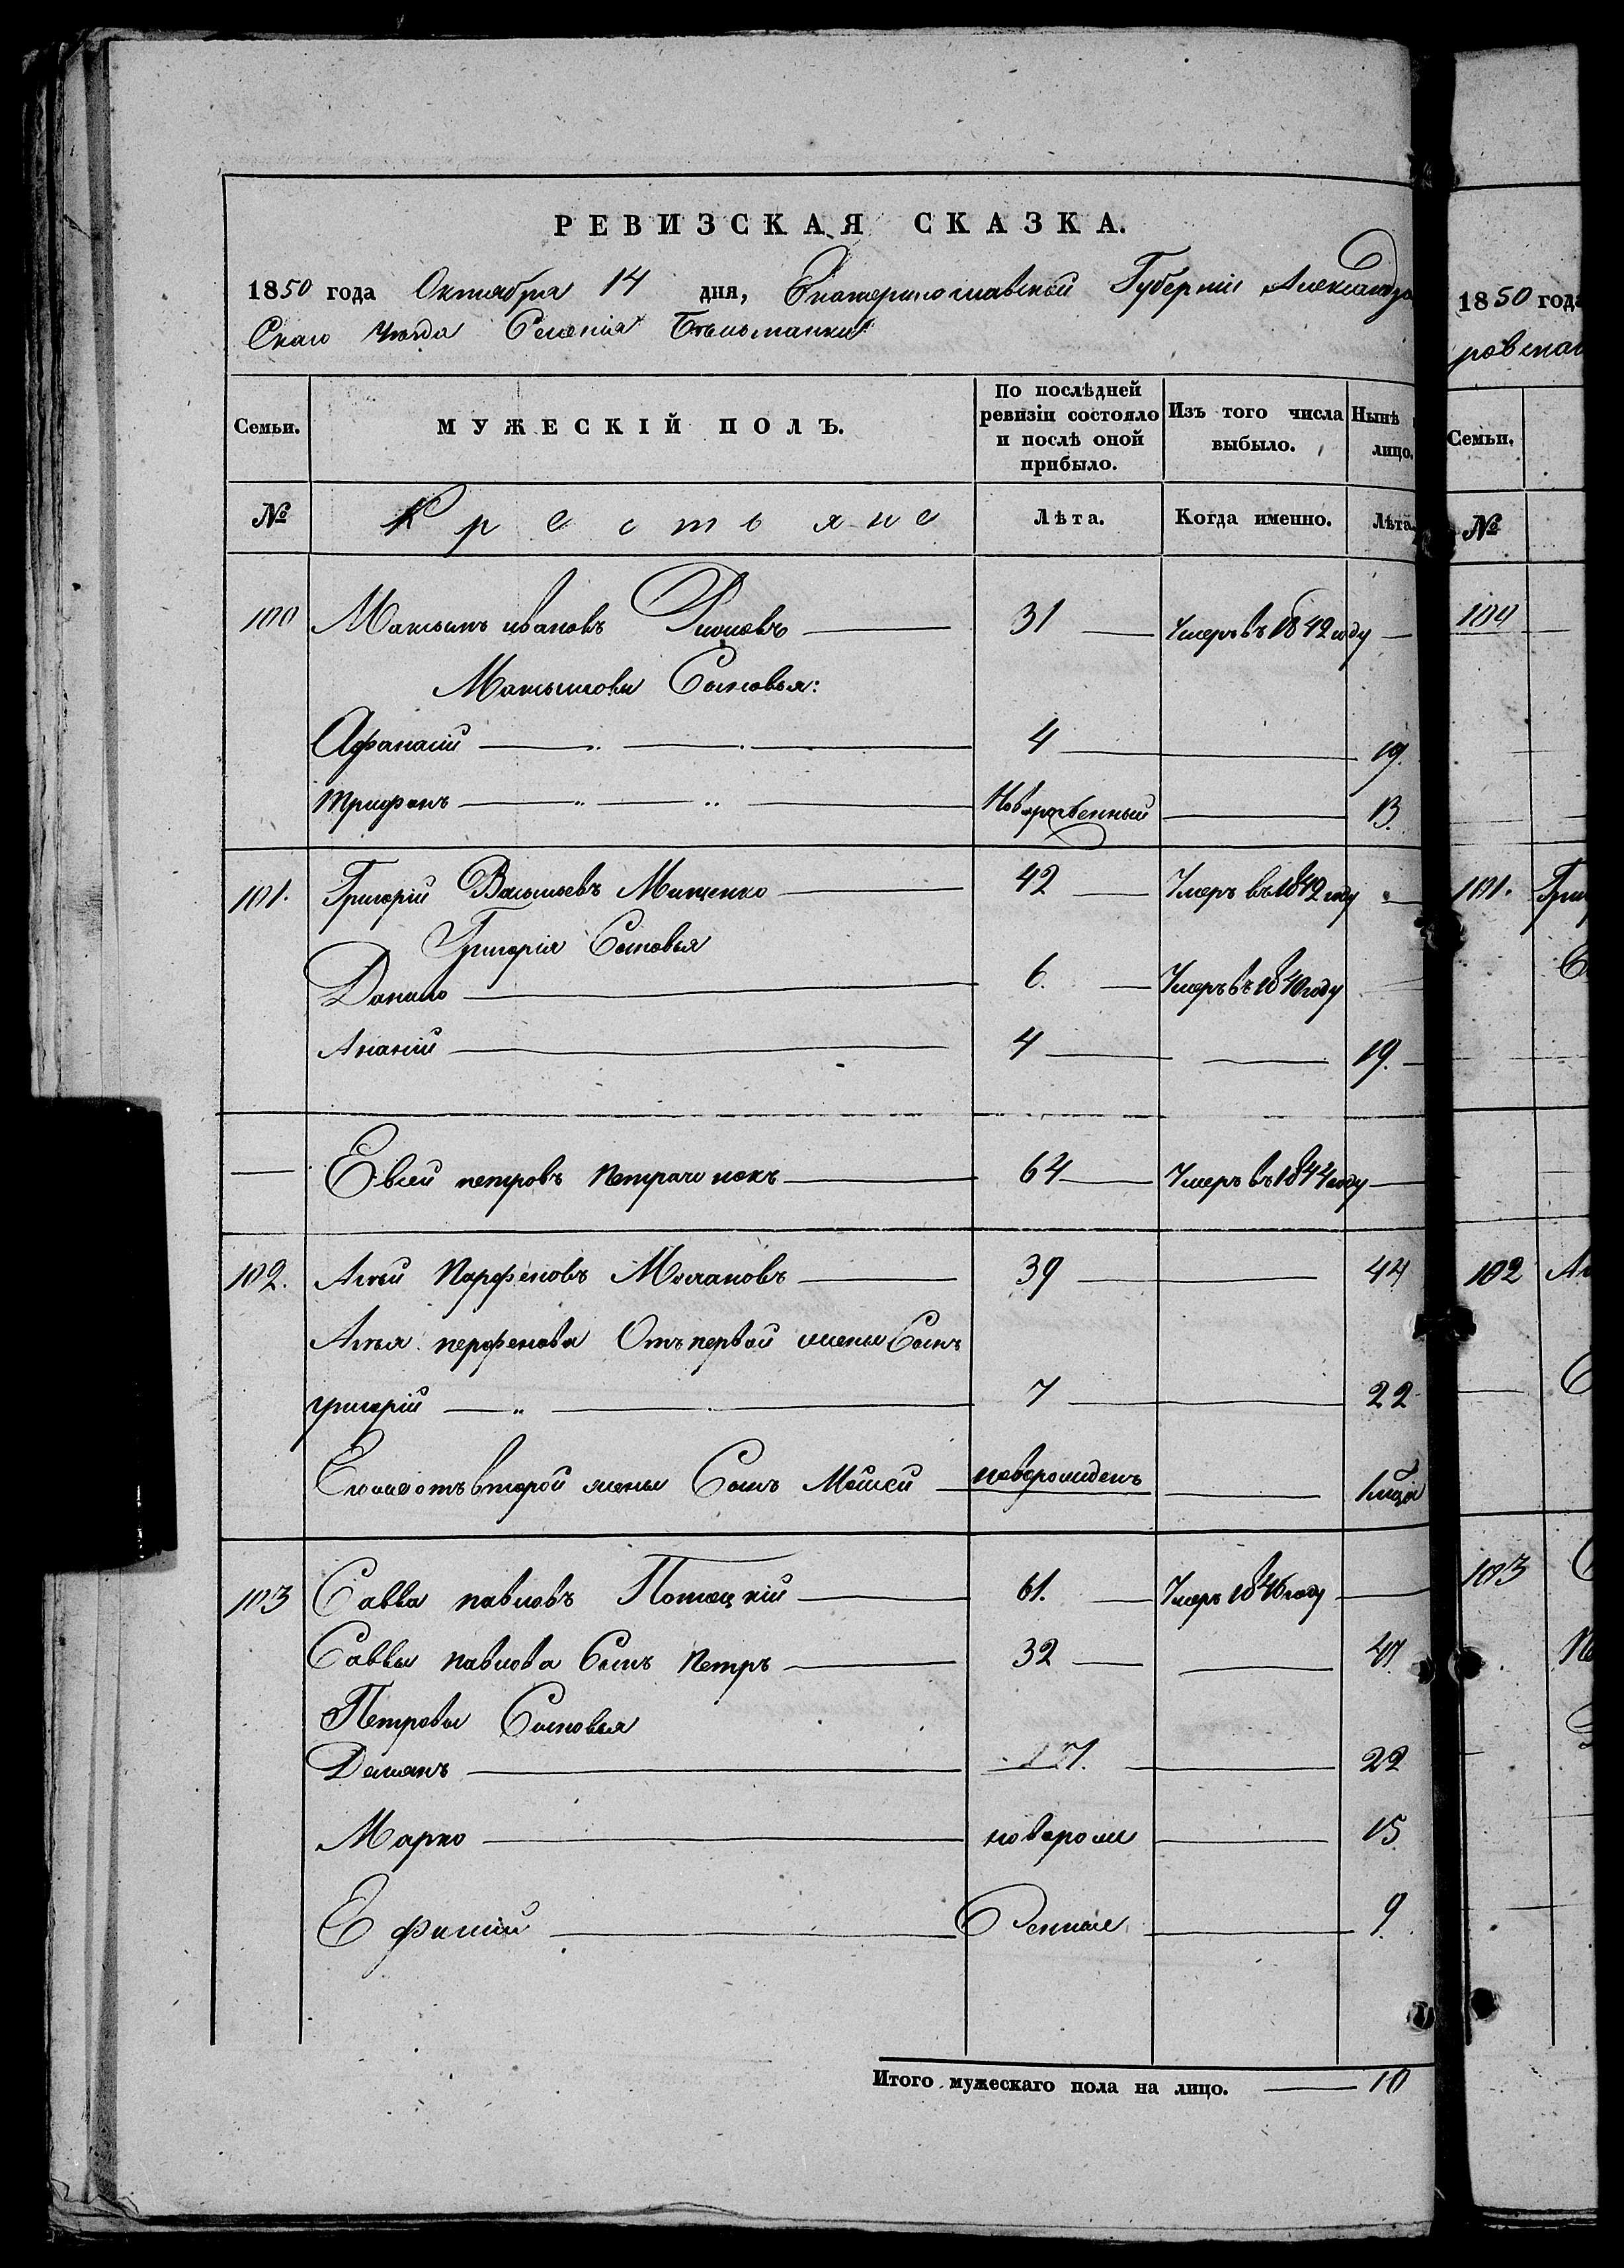 РЕВИЗСКАЯ СКАЗКА.
1850 года Октября 14 дня, Екатеринославской Губерніи Александро
Скаго Уѣзда Селенія Бѣльманки
Семьи. МУЖЕСКІЙ ПОЛЪ. По послѣдней ревизіи состояло и послѣ оной прибыло. Изъ того числа выбыло. Нынѣ лицо.
№ Крестьяне Лѣта. Когда именно. Лѣта.
100 Максимъ ивановъ 31 Умеръ въ 1842 году
Максимовы Сыновья:
Афанасій 4 19.
трифонъ Новорожденный 13.
101. Григорій Васильевъ Мищенко 42 Умеръ въ 1842 году
Григорія Сыновья
Данило 6. Умеръ въ 1840 году
Ананій 4 19.
Евсей петровъ 64 Умеръ въ 1844 году
102. Агѣй Парфеновъ Молчановъ 39 44
Агѣя перфенова Отъ первой жены Сынъ
григорій 7 22
Его же отъ второй жены Сынъ Мойсей новорожденъ
103 Савва павловъ Потоцкій 61. Умеръ 1846 году
Саввы павлова Сынъ петръ 32 47.
Петровы Сыновья
Демянъ 7. 22
Марко новорож 15
Ефимій денные 9.
Итого мужескаго пола на лицо. 10
1850 года
ровскаго
Семьи.
№
100
101. Григ
102 Аг
103